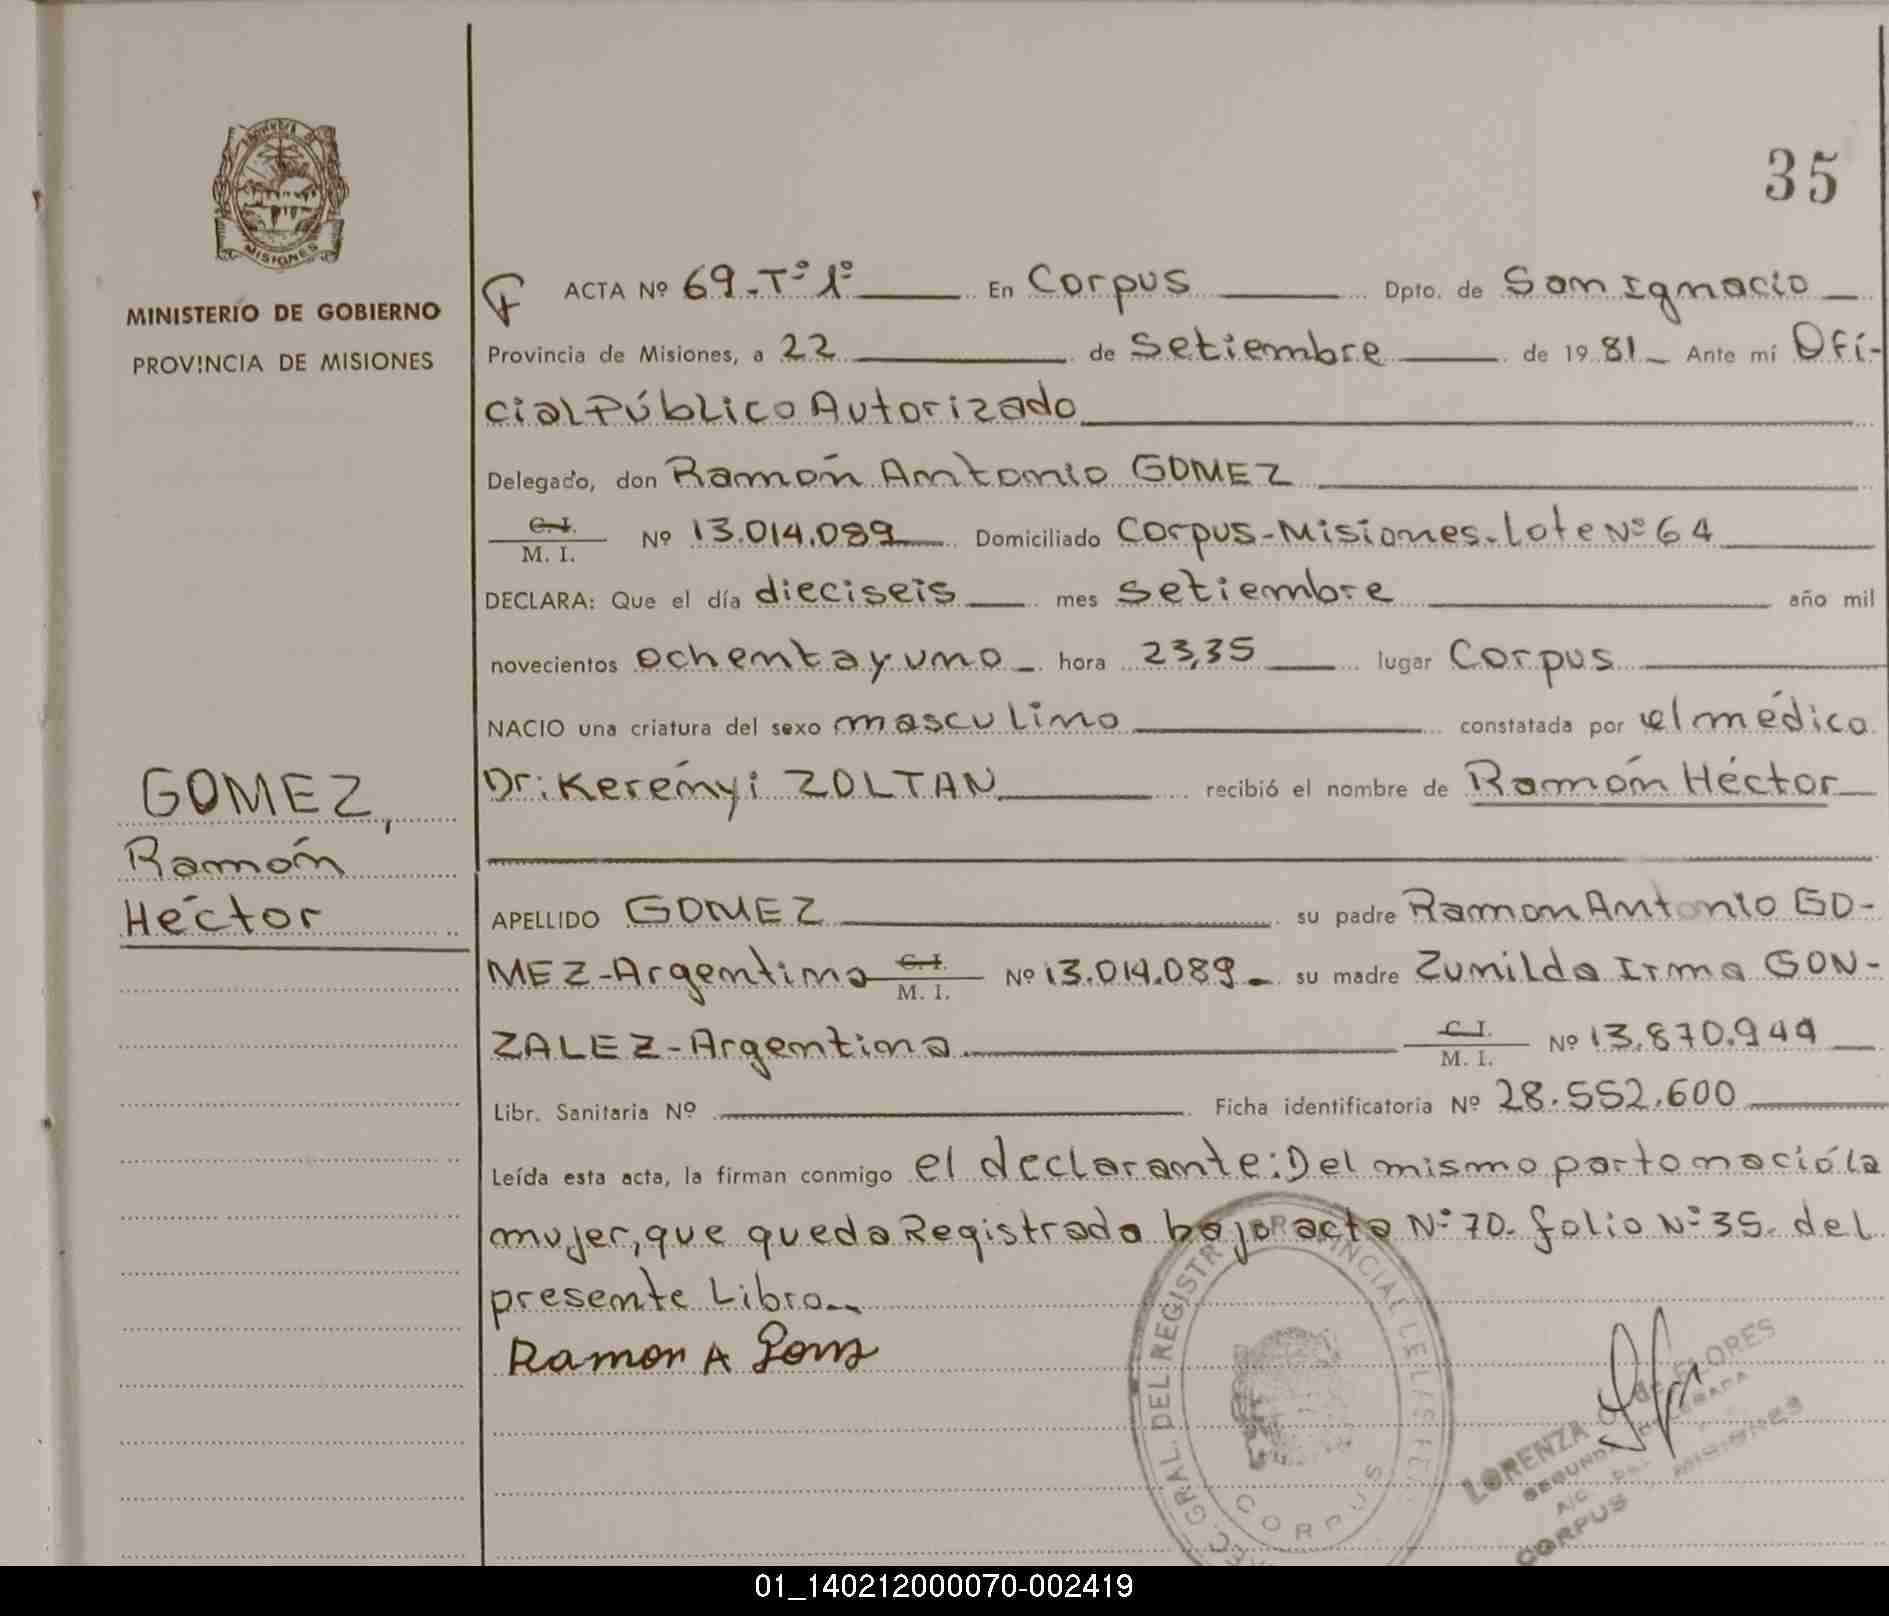 35
MINISTERIO DE GOBIERNO
PROVINCIA DE MISIONES
MISIONES
ACTA Nº 69-Tº 1º En Corpus Dpto. de San Ignacio
Provincia de Misiones, a 22 de Setiembre de 1981 Ante mí Ofi-
cial Público Autorizado
Delegado, don Ramón Antonio GOMEZ
C.I. M. I. Nº 13.014.089 Domiciliado Corpus-Misiones-lote Nº 64
DECLARA: Que el día dieciseis mes Setiembre año mil
novecientos ochenta y uno hora 23,35 lugar Corpus
NACIO una criatura del sexo masculino constatada por el médico
Dr: Kerényi ZOLTAN recibió el nombre de Ramón Héctor
GOMEZ,
Ramón
Héctor
APELLIDO GOMEZ su padre Ramon Antonio GO-
MEZ-Argentino C.I. M. I. Nº 13.014.089 su madre Zunilda Irma GON-
ZALEZ-Argentina C.I. M. I. Nº 13.870.949
Libr. Sanitaria Nº Ficha identificatoria Nº 28.552.600
Leída esta acta, la firman conmigo el declarante: Del mismo parto nació la
mujer, que queda Registrada bajo acta Nº 70. folio Nº 35. del
presente Libro
Ramon A
GRAL. DEL REGISTR PROVINCIAL DE LAS PER
CORPUS
LORENZA de FLORES
SEGUNDA
A/C DEL
CORPUS MISIONES
01_140212000070-002419